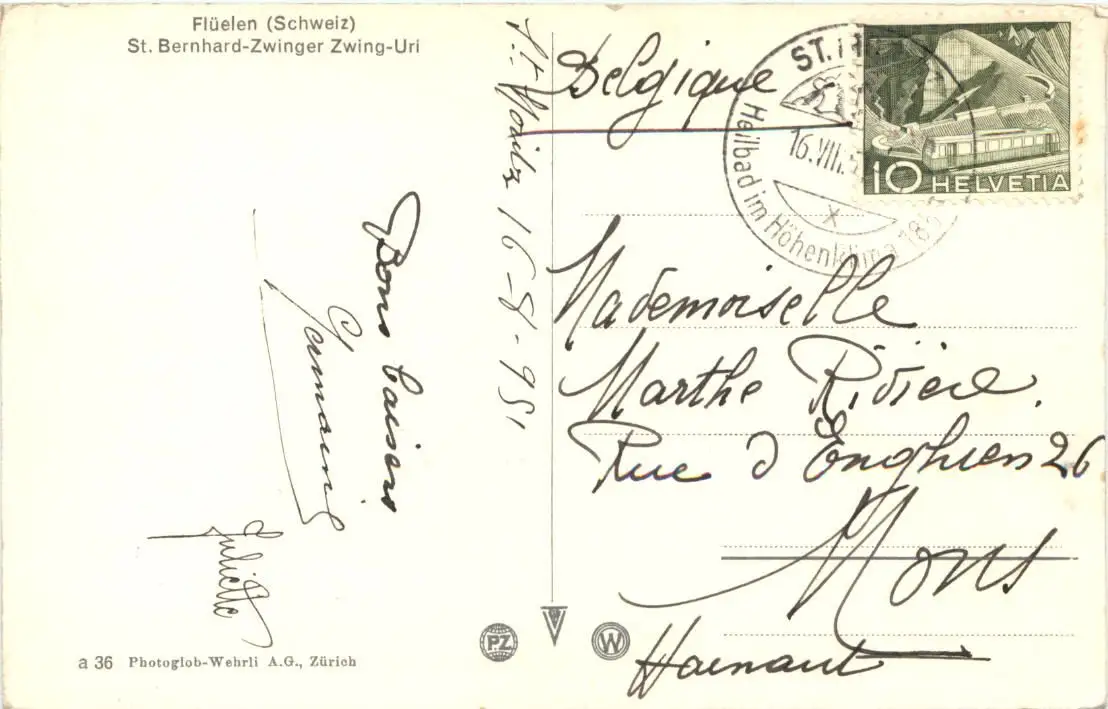 Flüelen (Schweiz)
St. Bernhard-Zwinger Zwing-Uri
St Moritz 16-8-951
Bons baisers
Germaine
Juliette
Belgique
ST.
16.VIII.5
Heilbad im Höhenklima 18
10 HELVETIA
Mademoiselle
Marthe Rivière.
Rue d Enghien 26
Mons
Hainaut
PZ
W
a 36 Photoglob-Wehrli A.G., Zürich